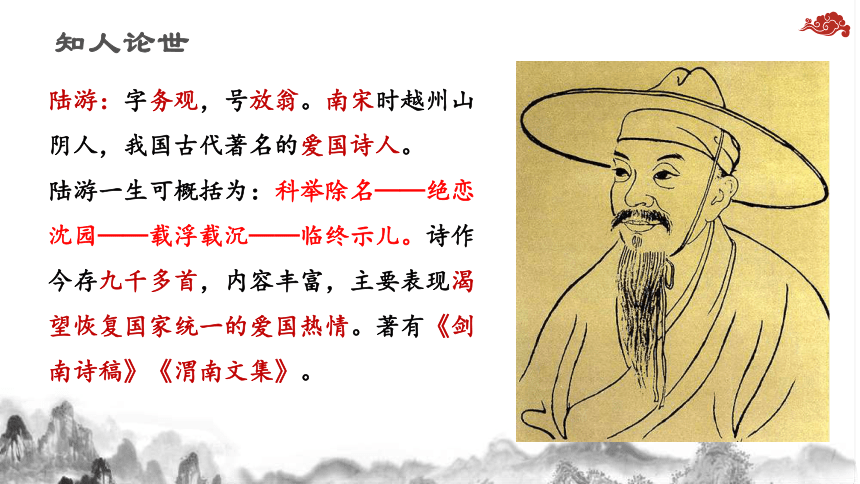 知人论世
陆游：字务观，号放翁。南宋时越州山
阴人，我国古代著名的爱国诗人。
陆游一生可概括为：科举除名——绝恋
沈园——载浮载沉——临终示儿。诗作
今存九千多首，内容丰富，主要表现渴
望恢复国家统一的爱国热情。著有《剑
南诗稿》《渭南文集》。